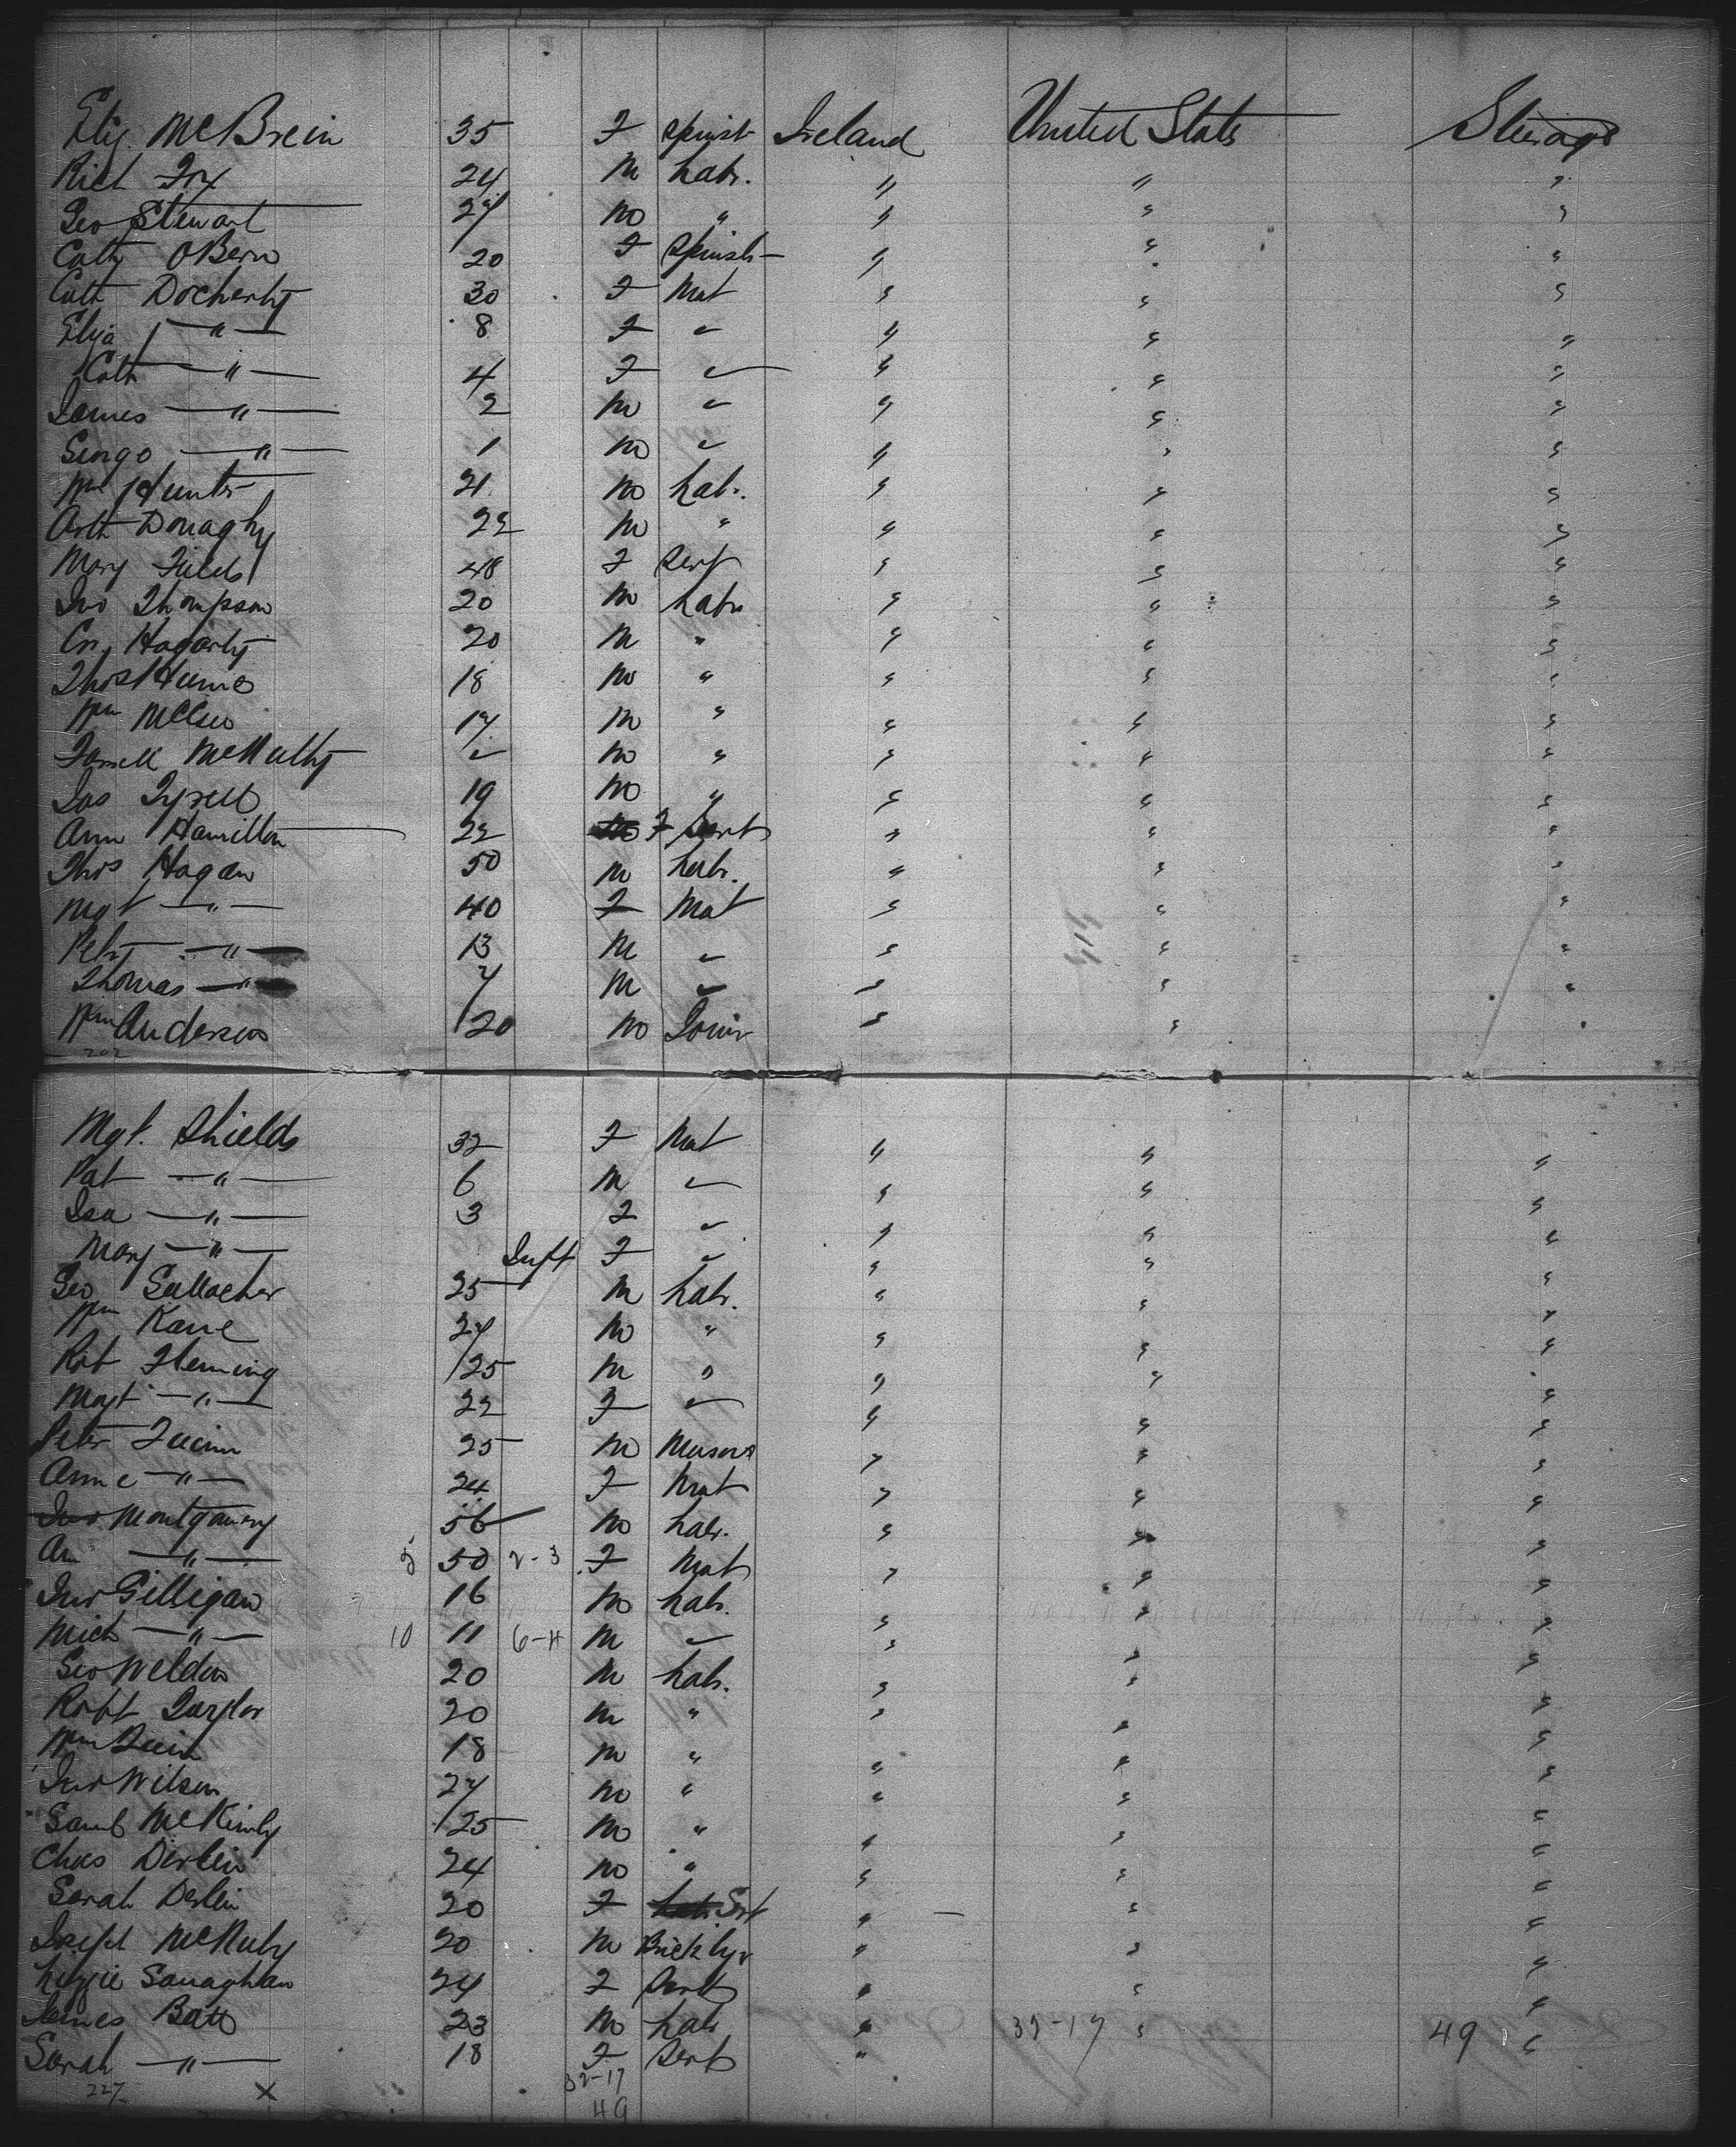 Eliz. McBrein 35 F Spinst Ireland United States Steerage
Rich Fox 24 M Labr. " " "
Geo Stewart 27 M " " " "
Cath OBern 20 F Spinst " " "
Cath Docherty 30 F Mat " " "
Eliza — " — 8 F ✓ " " "
Cath — " — 4 F ✓ " " "
James — " — 2 M ✓ " " "
— " — 1 M ✓ " " "
Wm Hunter 21 M Labr. " " "
Arth Donaghy 22 M " " " "
Mary Fields 48 F Servt " " "
Jno Thompson 20 M Labr " " "
Hagarty 20 M " " " "
Thos Hume 18 M " " " "
Wm McCue 17 M " " " "
McNulty ✓ M " " " "
Jas Tyrell 19 M " " " "
Ann Hamilton 22 F Servt " " "
Thos Hagan 50 M Labr. " " "
Mgt — " — 40 F Mat " " "
Peter — " — 13 M ✓ " " "
Thomas — " — 7 M ✓ " " "
Wm Anderson 20 M Joinr " " "
202
Mgt. Shields 32 F Mat " " "
Pat — " — 6 M ✓ " " "
Isa — " — 3 F ✓ " " "
Mary — " — Inft F ✓ " " "
Geo Gallacher 25 M Labr. " " "
Wm Kane 27 M " " " "
Rbt Fleming 25 M " " " "
Magt — " — 22 F ✓ " " "
Peter Quinn 25 M Mason " " "
Anne — " — 24 F Mat " " "
Jno Montgomery 56 M Labr. " " "
An — " — 5 50 2-3 F Mat " " "
Jno Gilligan 16 M Labr. " " "
Mich — " — 10 11 6-4 M ✓ " " "
Geo Weldon 20 M Labr. " " "
Robt Taylor 20 M " " " "
Wm Quin 18 M " " " "
Jno Wilson 27 M " " " "
Saml McKinly 25 M " " " "
Chas Devlin 24 M " " " "
Sarah Devlin 20 F Labr Srvt " " "
Joseph McNulty 20 M Bricklyr " " "
Lizzie Sanaghan 24 F Servt " " "
James Batt 23 M Labr " 32-17 " 49 "
Sarah — " — 18 F Servt "
227 X 32-17
49